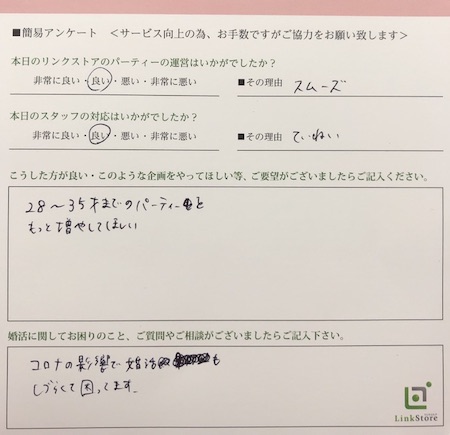 ■簡易アンケート ＜サービス向上の為、お手数ですがご協力をお願い致します＞
本日のリンクストアのパーティーの運営はいかがでしたか？
非常に良い・良い・悪い・非常に悪い ■その理由 スムーズ
本日のスタッフの対応はいかがでしたか？
非常に良い・良い・悪い・非常に悪い ■その理由 ていねい
こうした方が良い・このような企画をやってほしい等、ご要望がございましたらご記入ください。
28〜35才までのパーティーを
もっと増やしてほしい
婚活に関してお困りのこと、ご質問やご相談がございましたらご記入下さい。
コロナの影響で婚活も
しづらくて困ってます。
LinkStore